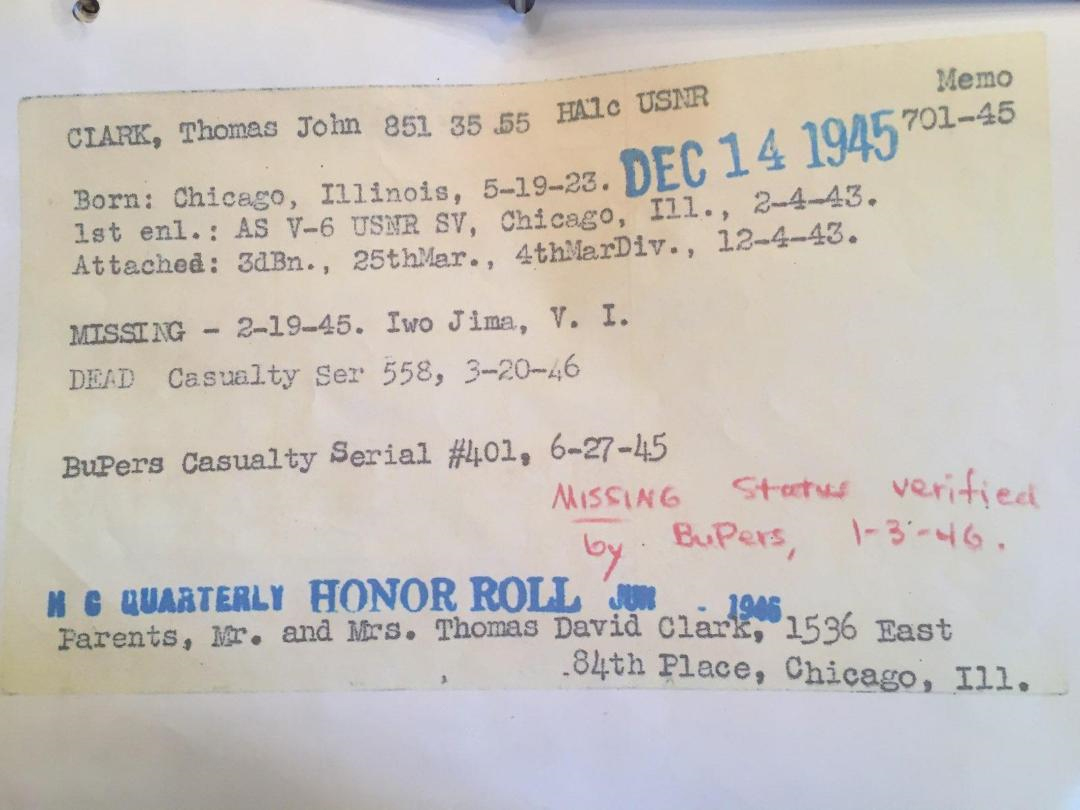 Memo
CLARK, Thomas John 851 35 55 HA1c USNR 701-45
DEC 14 1945
Born: Chicago, Illinois, 5-19-23.
1st enl.: AS V-6 USNR SV, Chicago, Ill., 2-4-43.
Attached: 3dBn., 25thMar., 4thMarDiv., 12-4-43.
MISSING - 2-19-45. Iwo Jima, V. I.
DEAD Casualty Ser 558, 3-20-46
BuPers Casualty Serial #401, 6-27-45
MISSING Status verified
by BuPers, 1-3-46.
QUARTERLY HONOR ROLL JUN - 1946
Parents, Mr. and Mrs. Thomas David Clark, 1536 East
84th Place, Chicago, Ill.